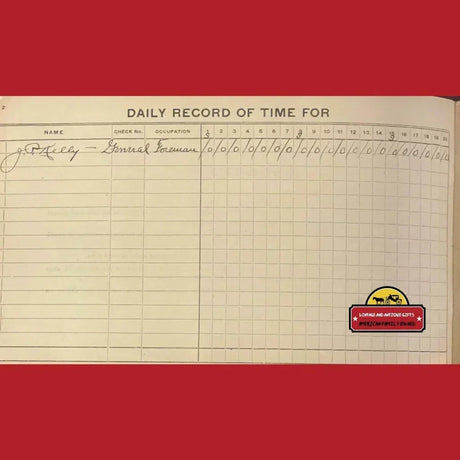 2
DAILY RECORD OF TIME FOR
NAME CHECK No. OCCUPATION 1 2 3 4 5 6 7 8 9 10 11 12 13 14 15 16 17 18 19 20
J. P. Kelly — General Foreman 10 10 10 10 10 10 10 10 10 10 10 10 10 10 10 10 10 10 10 10
VINTAGE AND ANTIQUE GIFTS
AMERICAN FAMILY OWNED